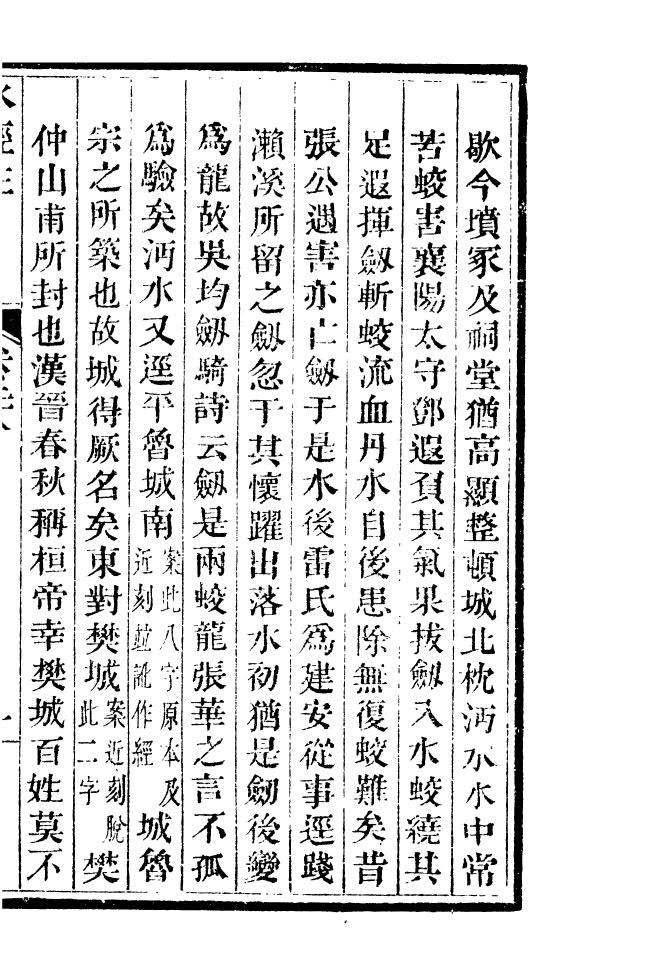 歇今墳冢及祠堂猶高顯整頓城北枕沔水水中常
苦蛟害襄陽太守鄧遐負其氣果拔劔入水蛟繞其
足遐揮劔斬蛟流血丹水自後患除無復蛟難矣昔
張公遇害亦亡劔于是水後雷氏爲建安從事逕踐
瀨溪所留之劔忽于其懷躍出落水初猶是劔後變
爲龍故吳均劔騎詩云劔是兩蛟龍張華之言不孤
爲驗矣沔水又逕平魯城南案此八字原本及近刻並訛作經城魯
宗之所築也故城得厥名矣東對樊城案近刻脫此二字樊
仲山甫所封也漢晉春秋稱桓帝幸樊城百姓莫不
水經注